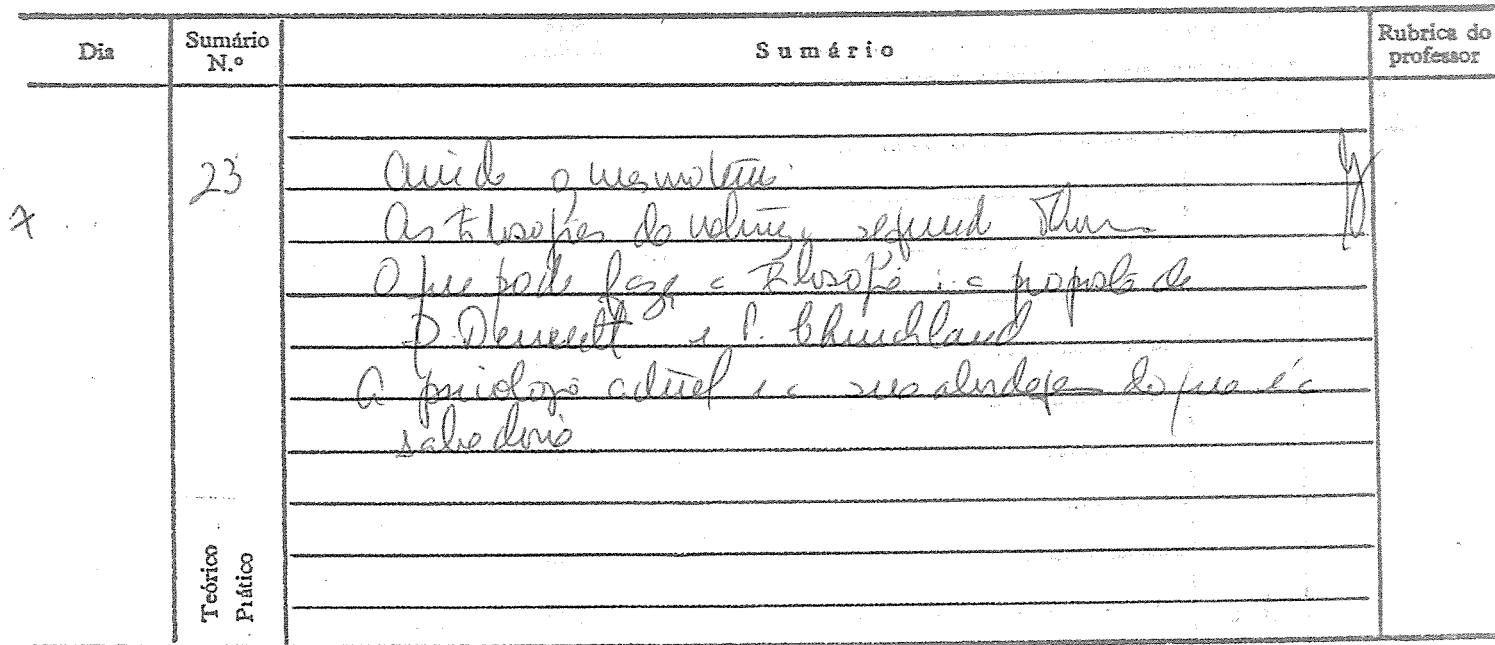 Dia
Sumário N.º
Sumário
Rubrica do professor
7
23
Ainda o mesmo tema.
As Filosofias da segundo
O que pode fazer a Filosofia: a proposta de
D. Dennett e P. Churchland
A psicologia actual e a sua abordagem do que é a
sabedoria
Teórico
Prático